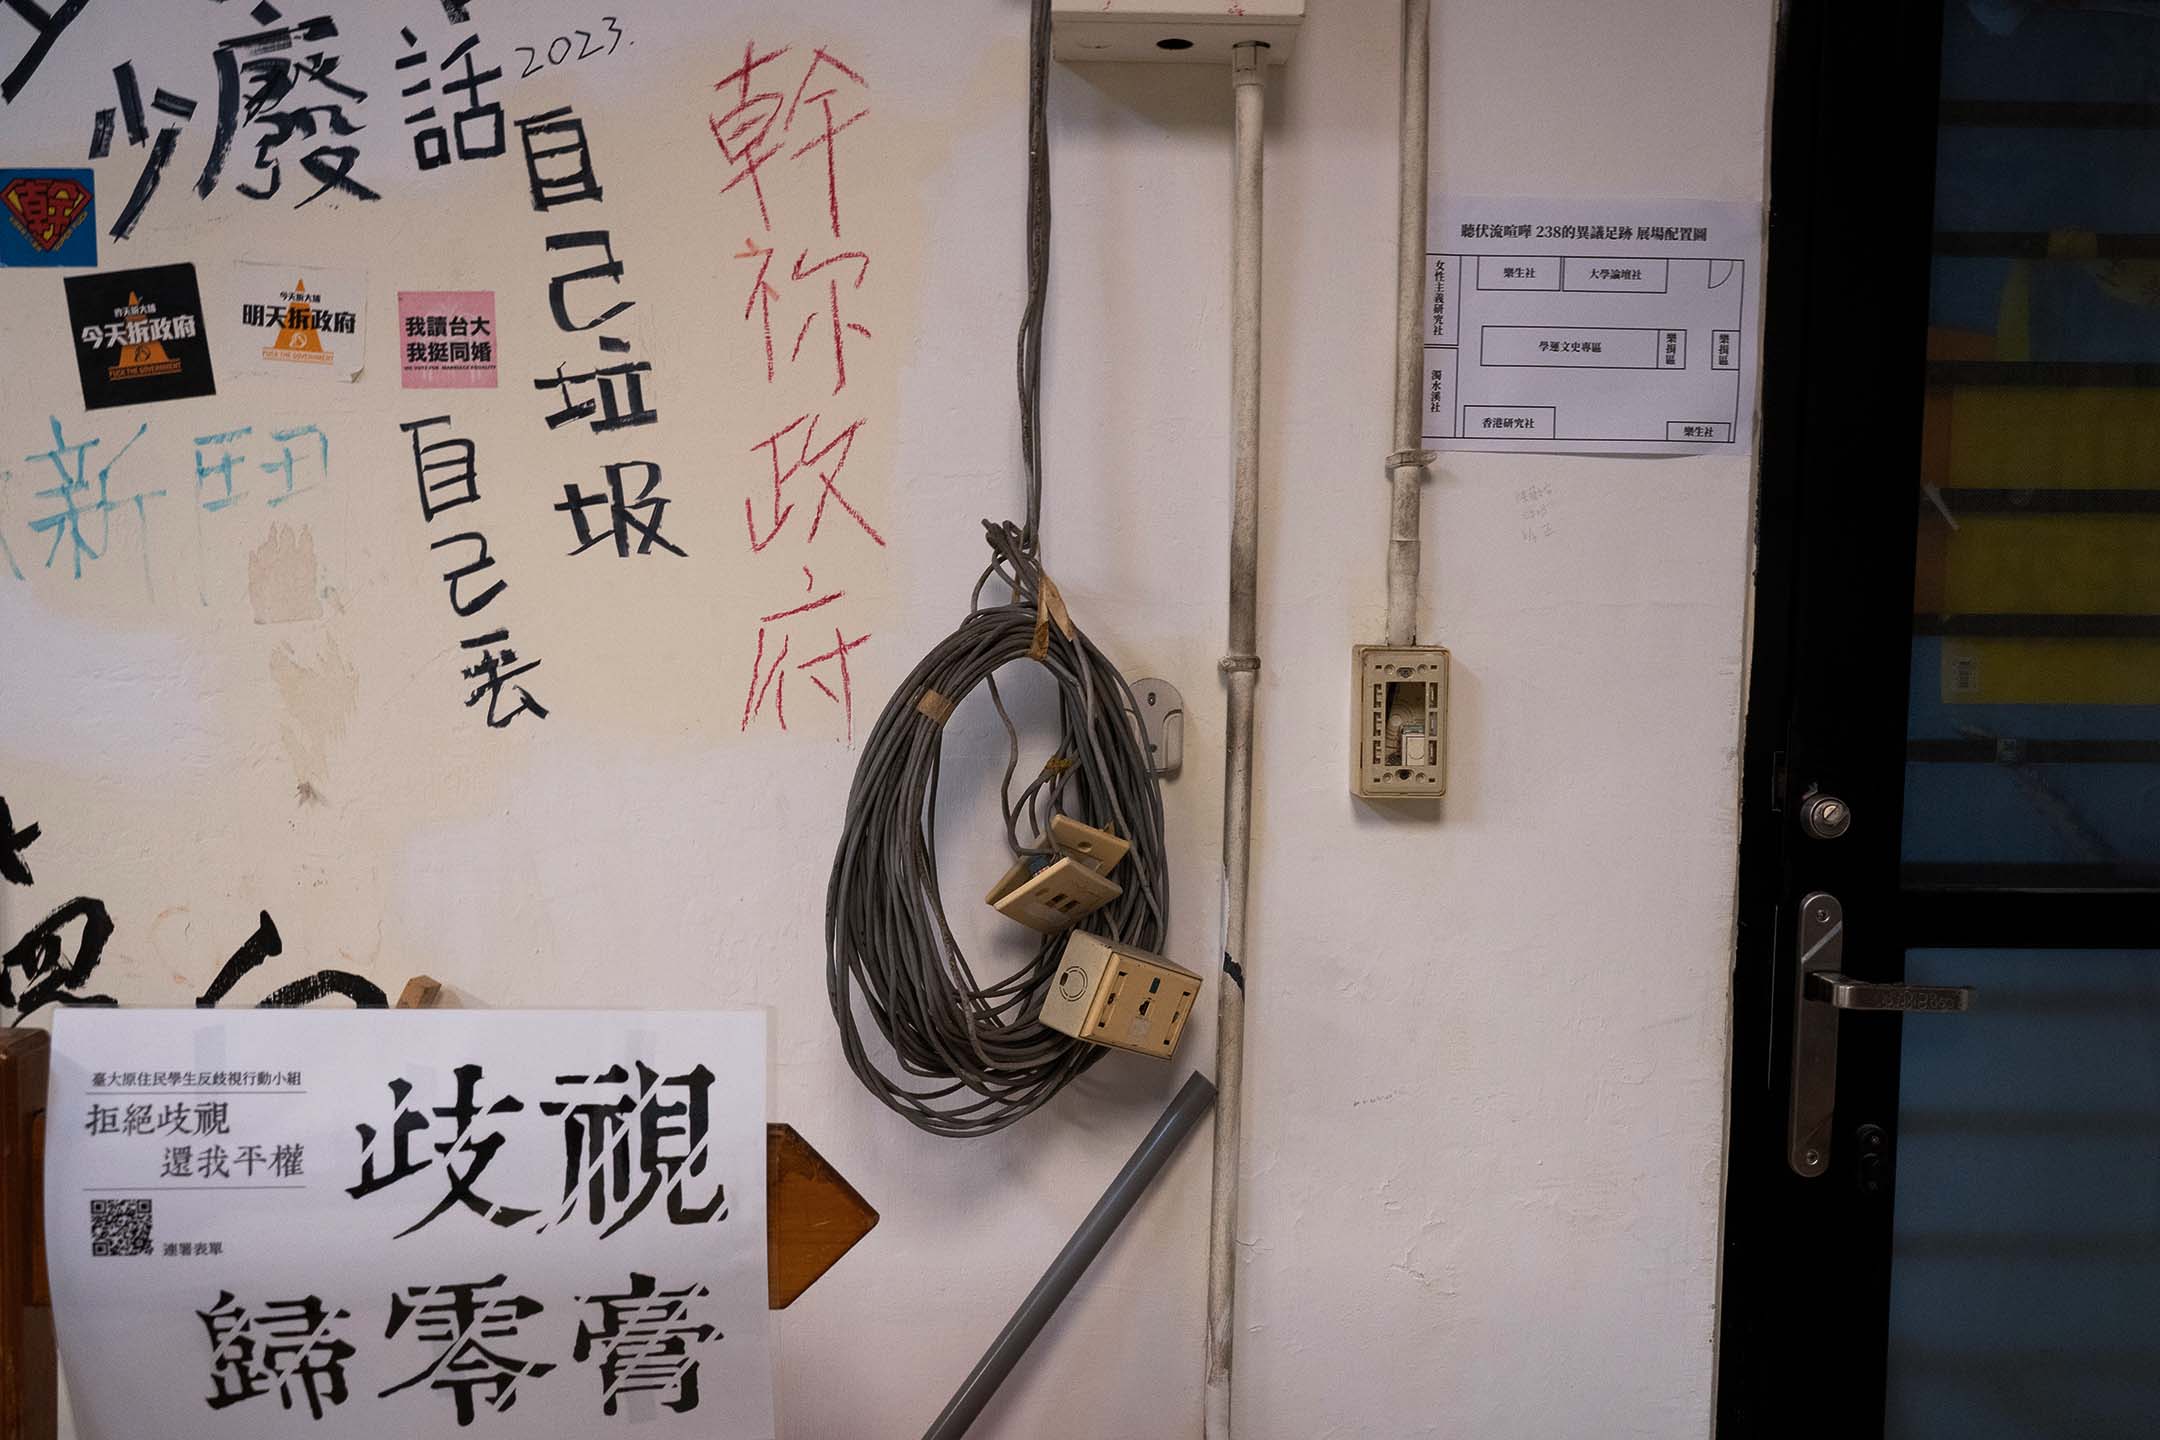 少廢話
2023.
自己垃圾
自己丟
幹祢政府
幹
昨天拆大埔
今天拆政府
FUCK THE GOVERNMENT
今天拆大埔
明天拆政府
FUCK THE GOVERNMENT
我讀台大
我挺同婚
WE VOTE FOR MARRIAGE EQUALITY
新
聽伏流喧嘩 238的異議足跡 展場配置圖
女性主義研究社
樂生社
大學論壇社
學運文史專區
樂捐區
樂捐區
濁水溪社
香港研究社
樂生社
臺大原住民學生反歧視行動小組
拒絕歧視
還我平權
連署表單
歧視
歸零膏